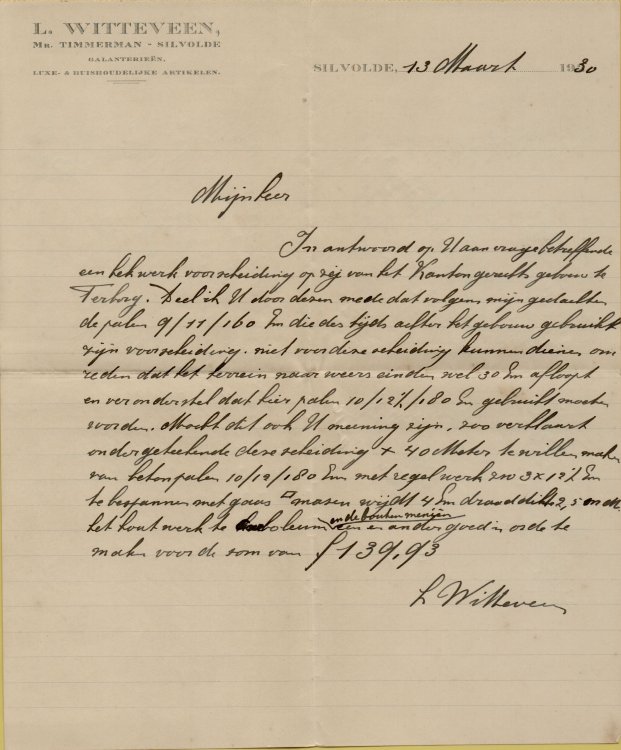 L. WITTEVEEN,
MR. TIMMERMAN - SILVOLDE
GALANTERIEËN,
LUXE- & HUISHOUDELIJKE ARTIKELEN.
SILVOLDE, 13 Maart 1930
Mijnheer
In antwoord op U aanvrage betreffende
een hekwerk voor scheiding op zij van het Kantongerechts gebouw te
Terborg. Deel ik U door dezen mede dat volgens mijn gedachten
de palen 9/11/160 cm die des tijds achter het gebouw gebruikt
zijn voor scheiding. niet voor deze scheiding kunnen dienen om
reden dat het terrein naar weers einden wel 30 cm afloopt
en veronderstel dat hier palen 10/12½/180 cm gebruikt moeten
worden. Mocht dit ook U meening zijn, zoo verklaart
ondergeteekende deze scheiding + 40 Meter te willen maken
van betonpalen 10/12/180 cm met regelwerk 3 x 12½ cm
te bespannen met gaas □ mazen wijdt 4 cm draaddikte 2,5 en
het hout werk te boleum en de bouten meniën en ander goed in orde te
maken voor de som van ƒ 139,93
L Witteveen